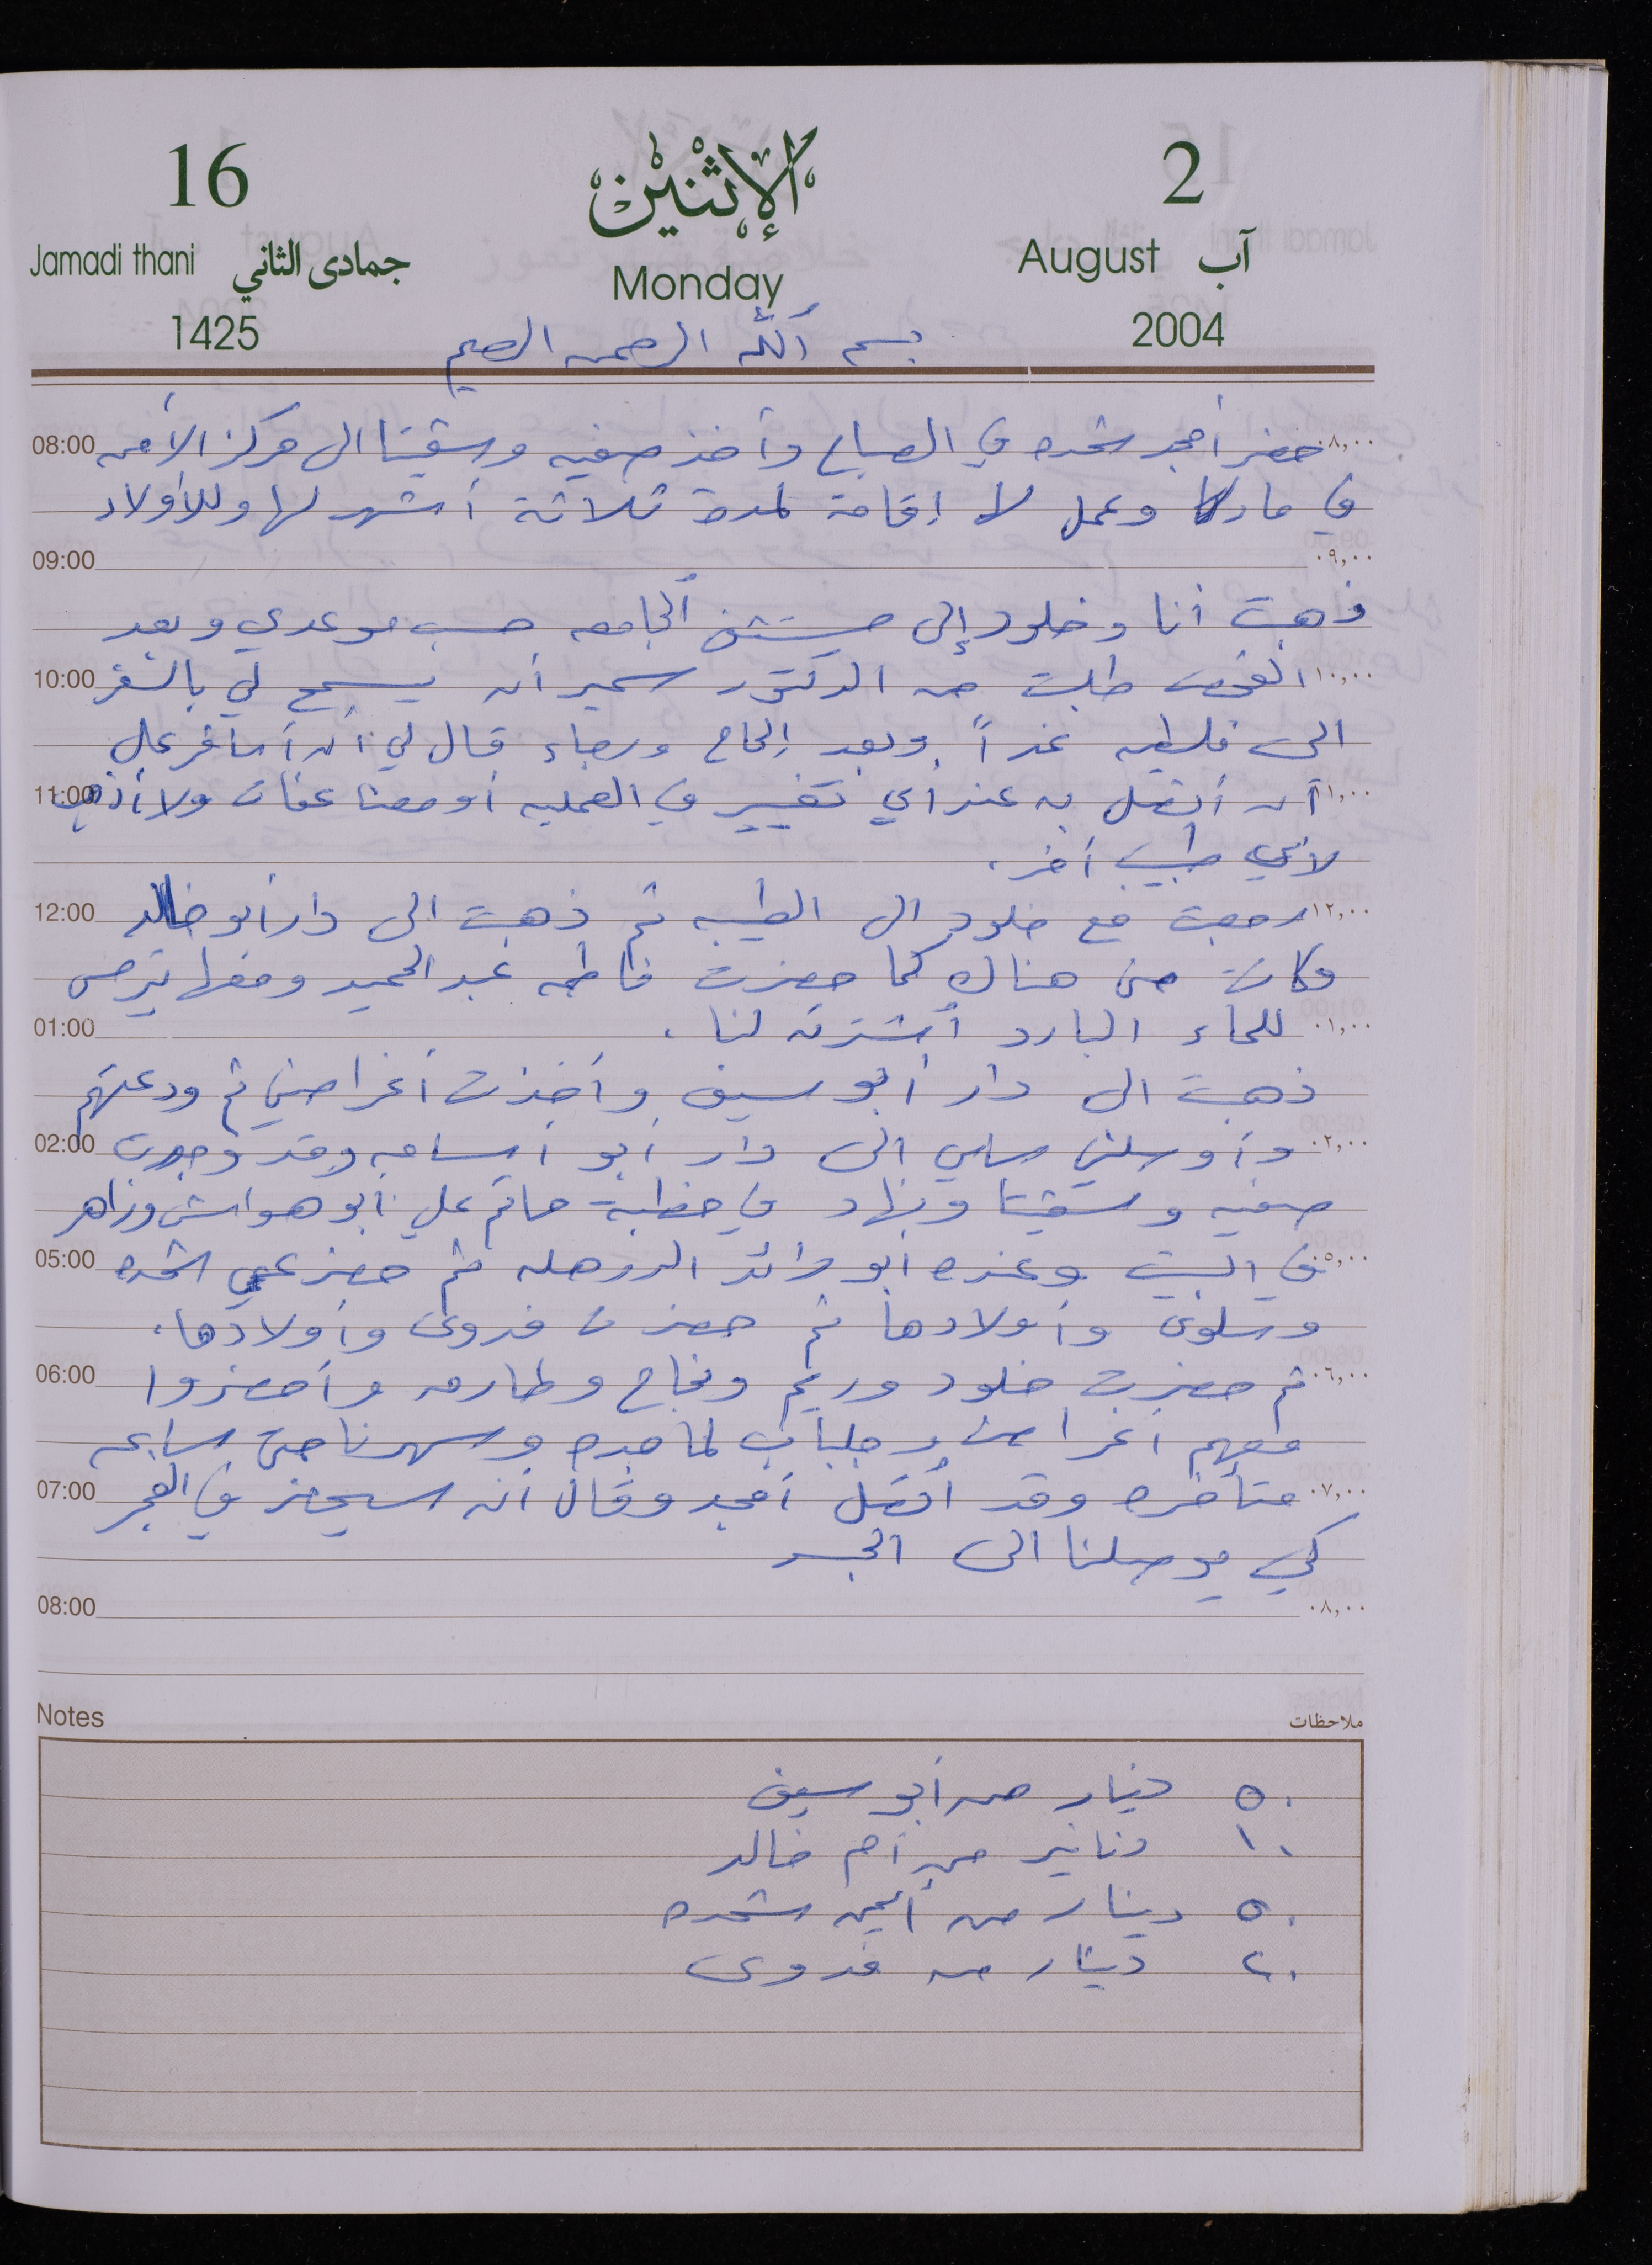 16 الإثنين 2
Jamadi thani جمادى الثاني Monday August آب
1425 2004
بسم الله الرحمن الرحيم
08:00 حضر أمجد شحده في الصباح وأخذ صفيه وشقيتا الى مركز الأمن ٠٨,٠٠
في ماركا وعمل لا إقامة لمدة ثلاثة أشهر لها وللأولاد
09:00 ٠٩,٠٠
ذهبت أنا وخلود إلى مستشفى الجامعه حسب موعدي وبعد
10:00 الفحص طلبت من الدكتور سمير أن يسمح لي بالسفر ١٠,٠٠
الى فلسطين غداً وبعد إلحاح ورجاء قال لي أن أسافر على
11:00 أن أتصل به عند أي تغيير في العمليه أو مضاعفات ولا أذهب ١١,٠٠
لأي طبيب أخر.
12:00 رجعت مع خلود الى الطيبه ثم ذهبت الى دار أبو خالد ١٢,٠٠
وكانت هناك كما حضرت فاطمه عبد الحميد ومعها ترمس
01:00 للماء البارد أشترته لنا. ٠١,٠٠
ذهبت الى دار أبو سيف وأخذت أغراضي ثم ودعتهم
02:00 وأوصلني سامي الى دار أبو أسامه وقد وجدت ٠٢,٠٠
صفيه وشقيتا ونهاد في خطبة حاتم علي أبو هواش وزاهر
05:00 في البيت وعنده أبو رائد ثم حضر عمي شحده ٠٥,٠٠
وسلوى وأولادها ثم حضرت فدوى وأولادها.
06:00 ثم حضرت خلود وريم ونجاح وطارق وأحضروا ٠٦,٠٠
معهم أغراض وجلباب لماجده وسهرنا حتى ساعه
07:00 متأخره وقد أتصل أمجد وقال أنه سيحضر في الفجر ٠٧,٠٠
كي يوصلنا الى الجسر
08:00 ٠٨,٠٠
Notes ملاحظات
٥٠ دينار من أبو سيف
١٠ دنانير من أم خالد
٥٠ دينار من أيمن شحده
٢٠ دينار من فدوى